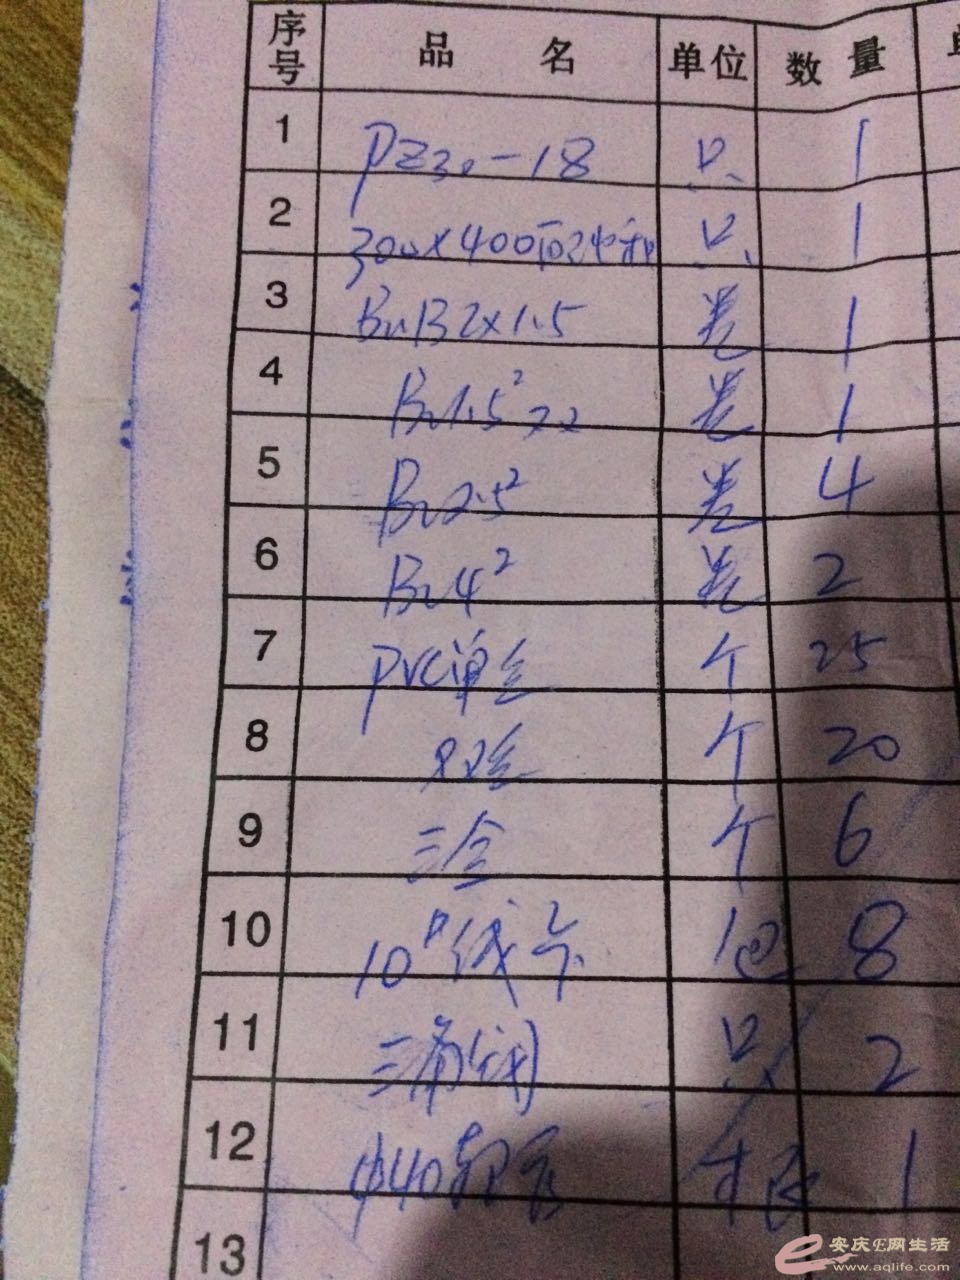 序号 品名 单位 数量
1 PZ30-18 只 1
2 300×400 只 1
3 BVB2×1.5 卷 1
4 BV1.5² 卷 1
5 BV2.5² 卷 4
6 BV4² 卷 2
7 PVC单盒 个 25
8 双盒 个 20
9 三盒 个 6
10 10#线卡 包 8
11 三角阀 只 2
12 φ40 根 1
13
安庆E网生活
www.aqlife.com